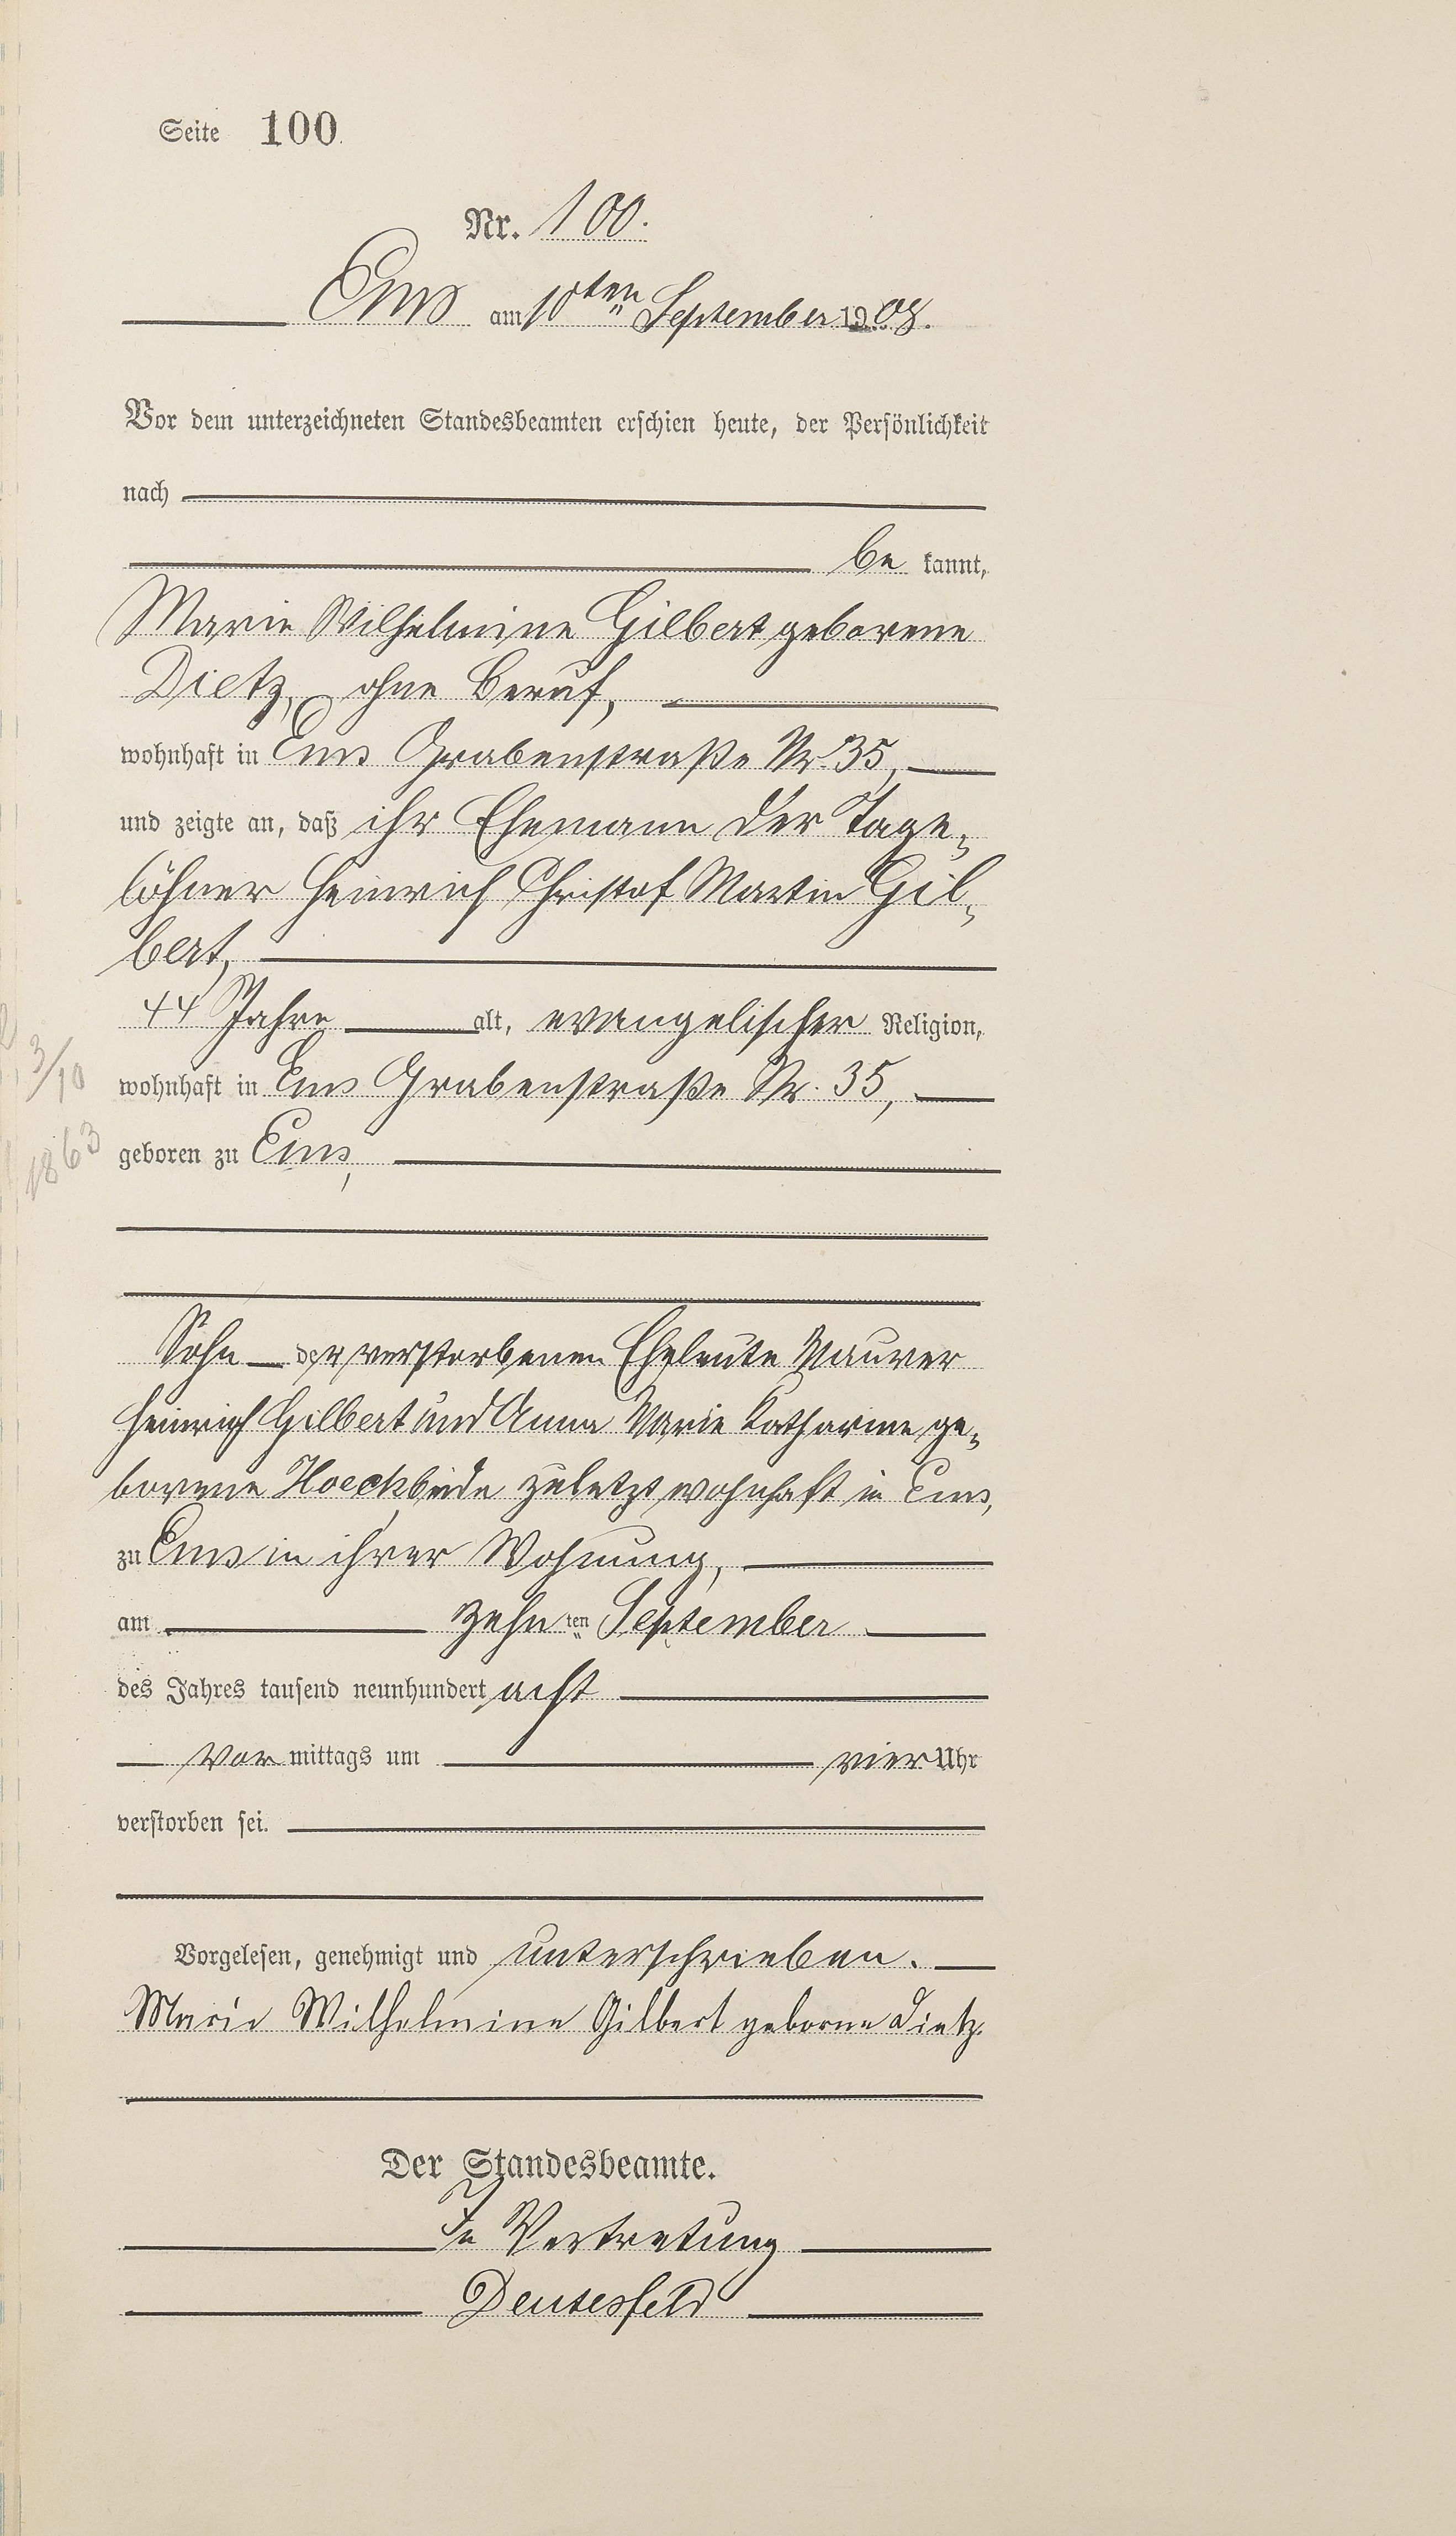 Seite 100.
Nr. 100.
Ems am 10ten September 1908.
Vor dem unterzeichneten Standesbeamten erschien heute, der Persönlichkeit
nach
be kannt,
Marie Wilhelmine Gilbert geborene
Dietz, ohne Beruf,
wohnhaft in Ems Grabenstraße Nr. 35,
und zeigte an, daß ihr Ehemann der Tage-
löhner Heinrich Christof Martin Gil-
bert,
44 Jahre alt, evangelischer Religion,
3/10
wohnhaft in Ems Grabenstraße Nr. 35,
1863
geboren zu Ems,
Sohn der verstorbenen Eheleute Maurer
Heinrich Gilbert und Anna Marie Katharine ge-
borene Hoeck, beide zuletzt wohnhaft in Ems,
zu Ems in ihrer Wohnung,
am zehn ten September
des Jahres tausend neunhundert acht
Vor mittags um vier Uhr
verstorben sei.
Vorgelesen, genehmigt und unterschrieben.
Marie Wilhelmine Gilbert geborne Dietz.
Der Standesbeamte.
In Vertretung
Deutesfeld